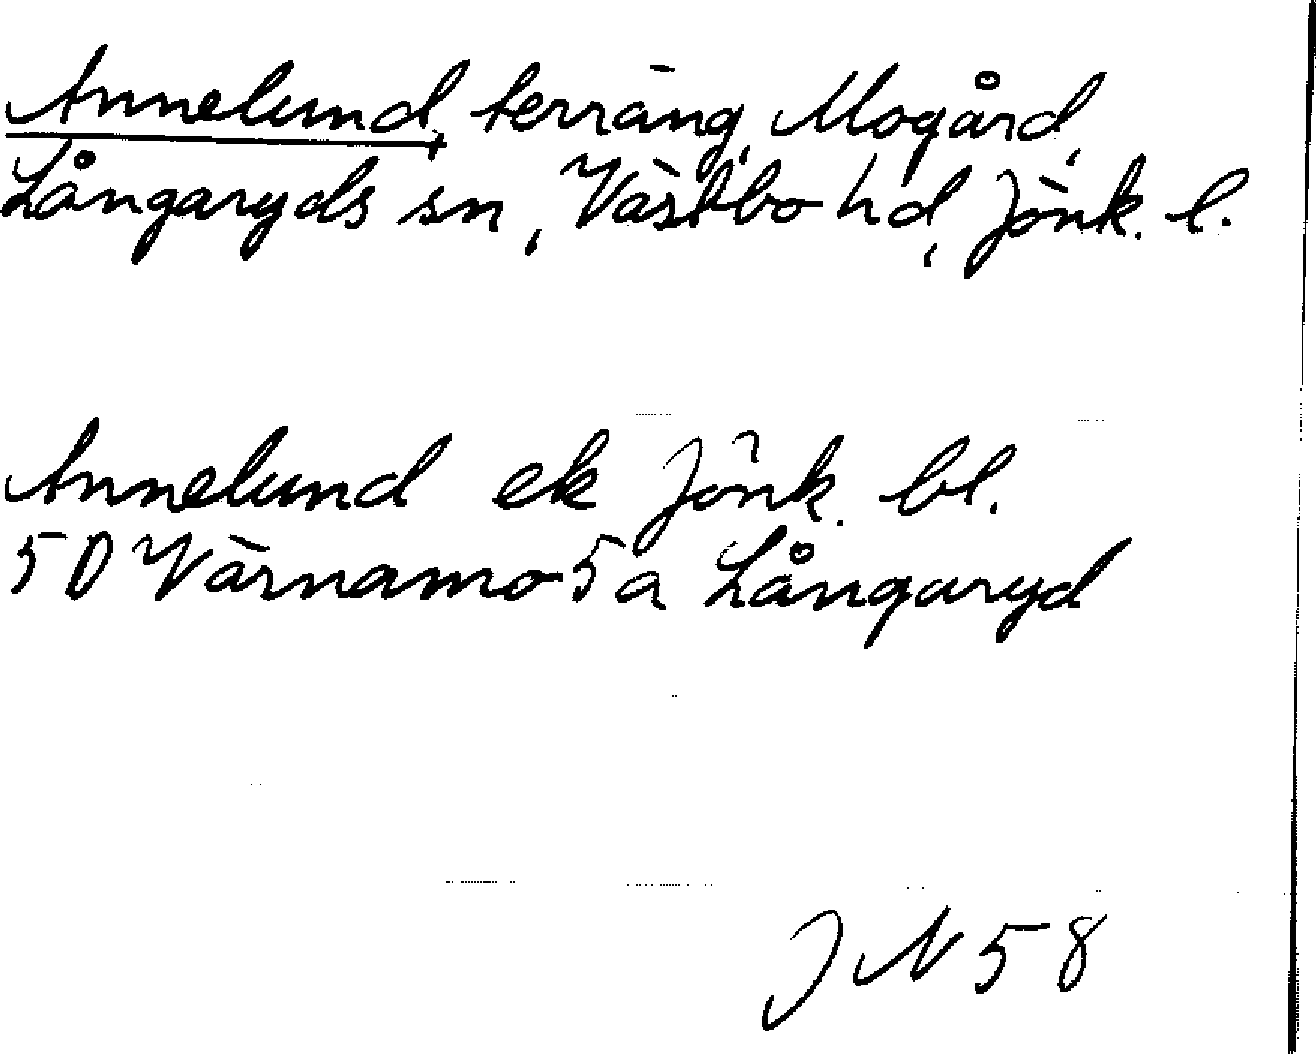 Annelund, terräng, Mogård,
Långaryds sn, Västbo hd, Jönk. l.
Annelund ek Jönk. bl.
5D Värnamo 5a Långaryd
JN58